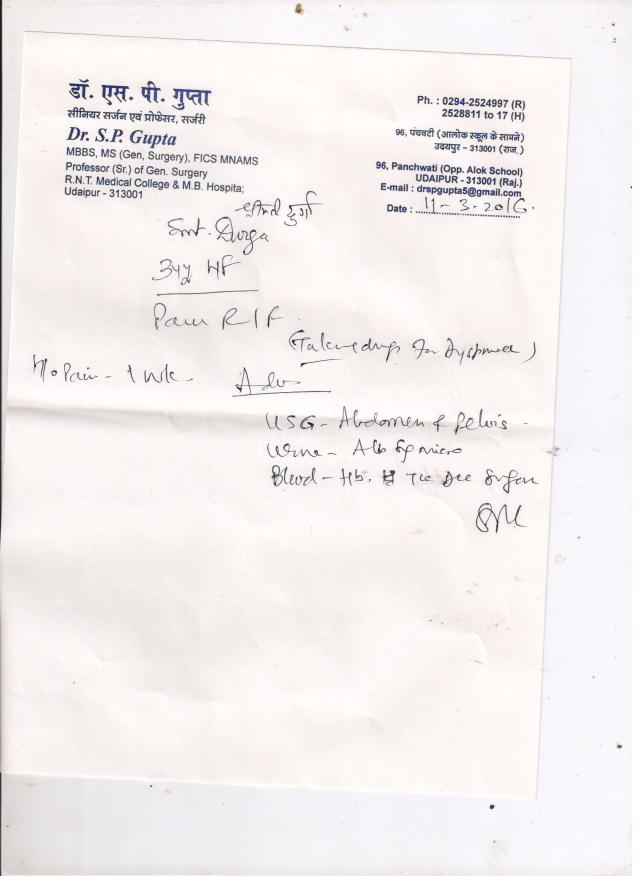 डॉ. एस. पी. गुप्ता
सीनियर सर्जन एवं प्रोफेसर, सर्जरी
Dr. S.P. Gupta
MBBS, MS (Gen, Surgery), FICS MNAMS
Professor (Sr.) of Gen. Surgery
R.N.T. Medical College & M.B. Hospita;
Udaipur - 313001
Ph. : 0294-2524997 (R)
2528811 to 17 (H)
96, पंचवटी (आलोक स्कूल के सामने)
उदयपुर - 313001 (राज.)
96, Panchwati (Opp. Alok School)
UDAIPUR - 313001 (Raj.)
E-mail : drspgupta5@gmail.com
Date : 11-3.2016.
श्रीमती दुर्गा
Smt. Durga
34y HF
Pain RIF
(Taken drugs for )
H/o Pain - 1 Wk
Adv
USG - Abdomen & Pelvis
Urine - Alb Sg micro
Blood - Hb. Tlc Dlc Sugar